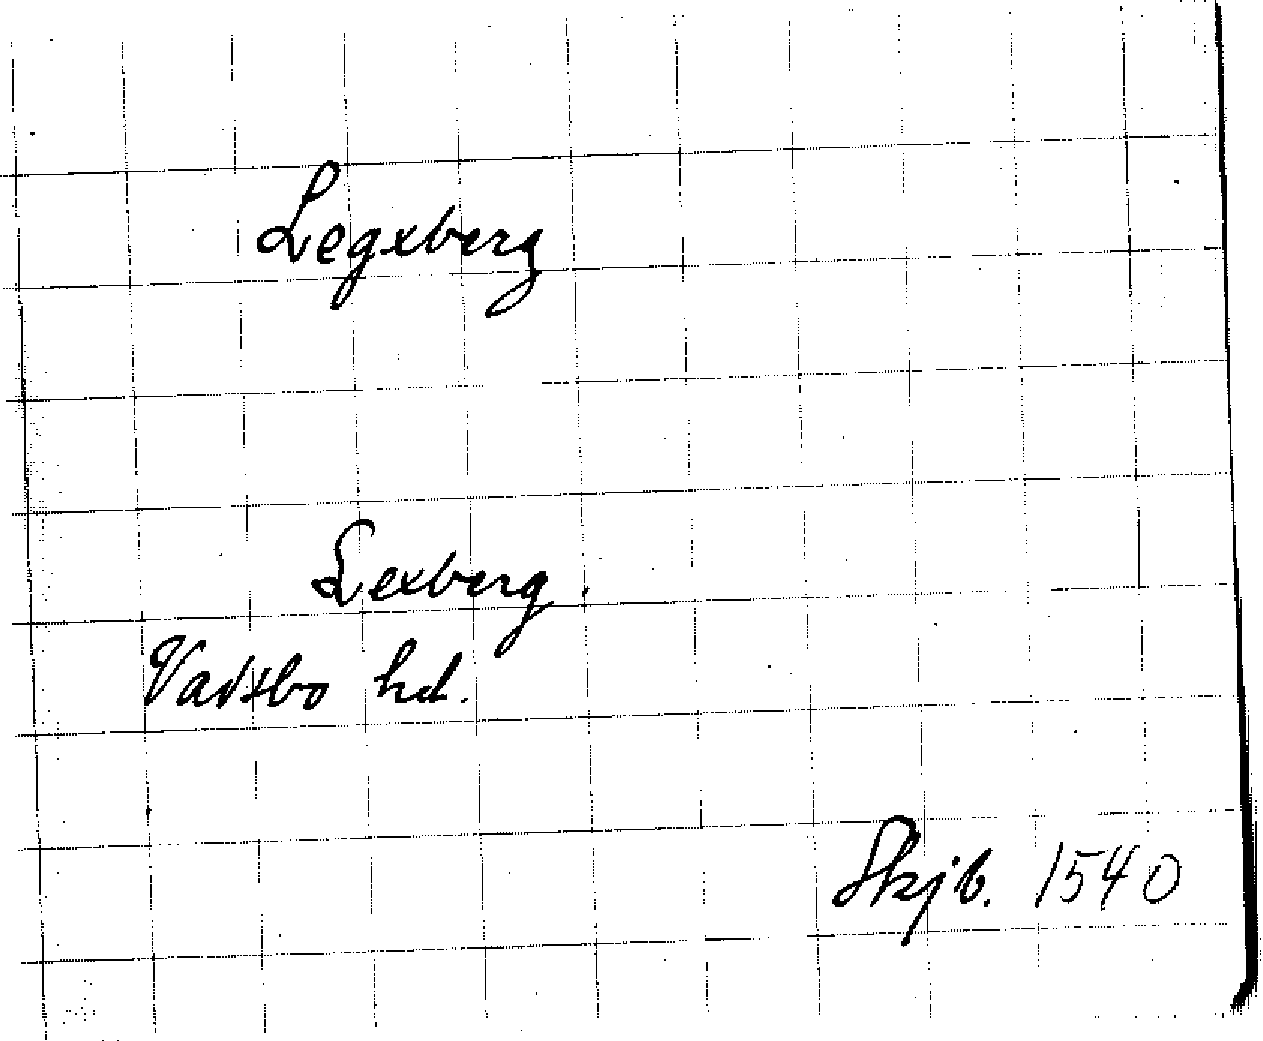 Legxberg
Lexberg.
Vadsbo hd.
Skjb. 1540